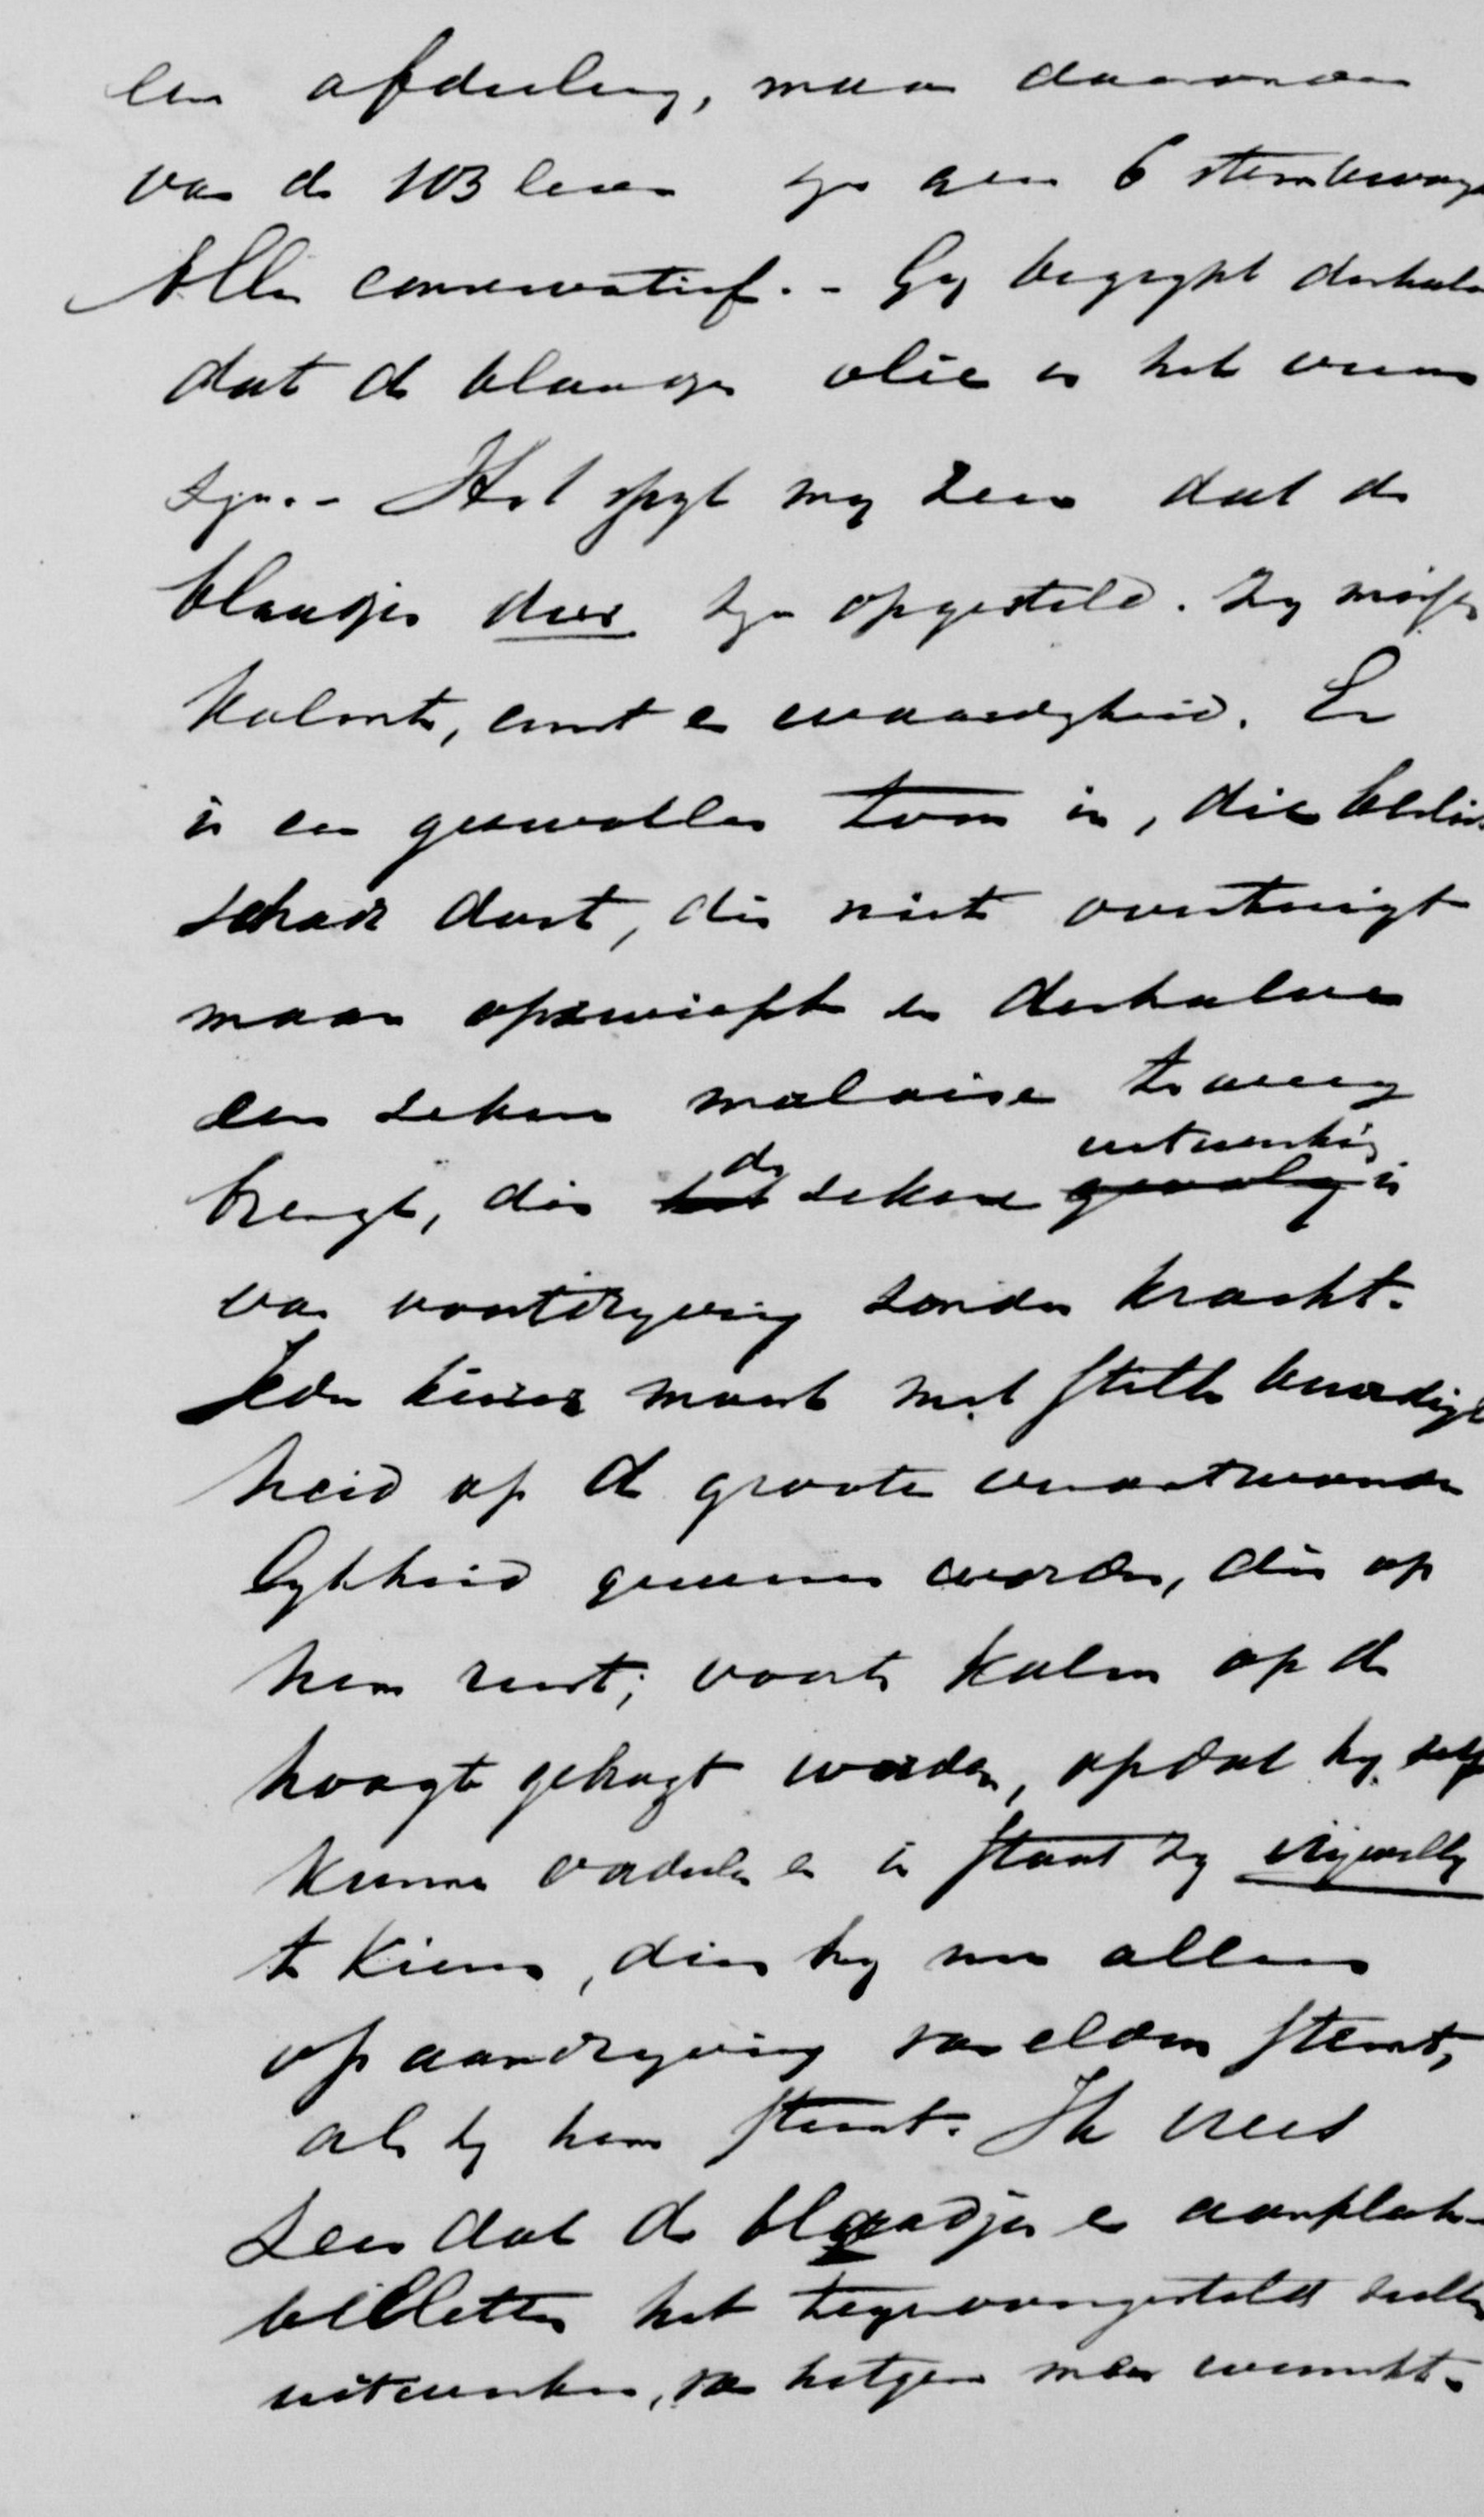 een afdeeling, maar daarvan
van de 103 leden zyn geen 6 stembevoegd
Alle conservatief. - Gy begrypt derhalve
dat de blaadjes olie in het vuur
zyn. - Het spyt my zeer dat de
blaadjes dus zyn opgesteld. Zy missen
kalmte, ernst en waardigheid. Er
is een gezwollen toon in, die beslist
schade doet, die niet overtuigt
maar opzwiept en derhalve
een zekere malaise te weeg
brengt, die de zekere uitwerking is
van voortdryving zonder kracht.
Ieder kiezer moest met stille waardig
heid op de groote verantwoorde
lykheid gewezen worden, die op
hem rust; voorts kalm op de
hoogte gebragt worden, opdat hy zelf
kunne oordeelen en in staat zy vrywillig
te kiezen, dien hy nu alleen
op aandryving van elders stemt,
als hy hem stemt. Ik vrees
zeer dat de blaadjes en aanplak-
billetten het tegenovergestelde zullen
uitwerken, van hetgeen men wenscht.